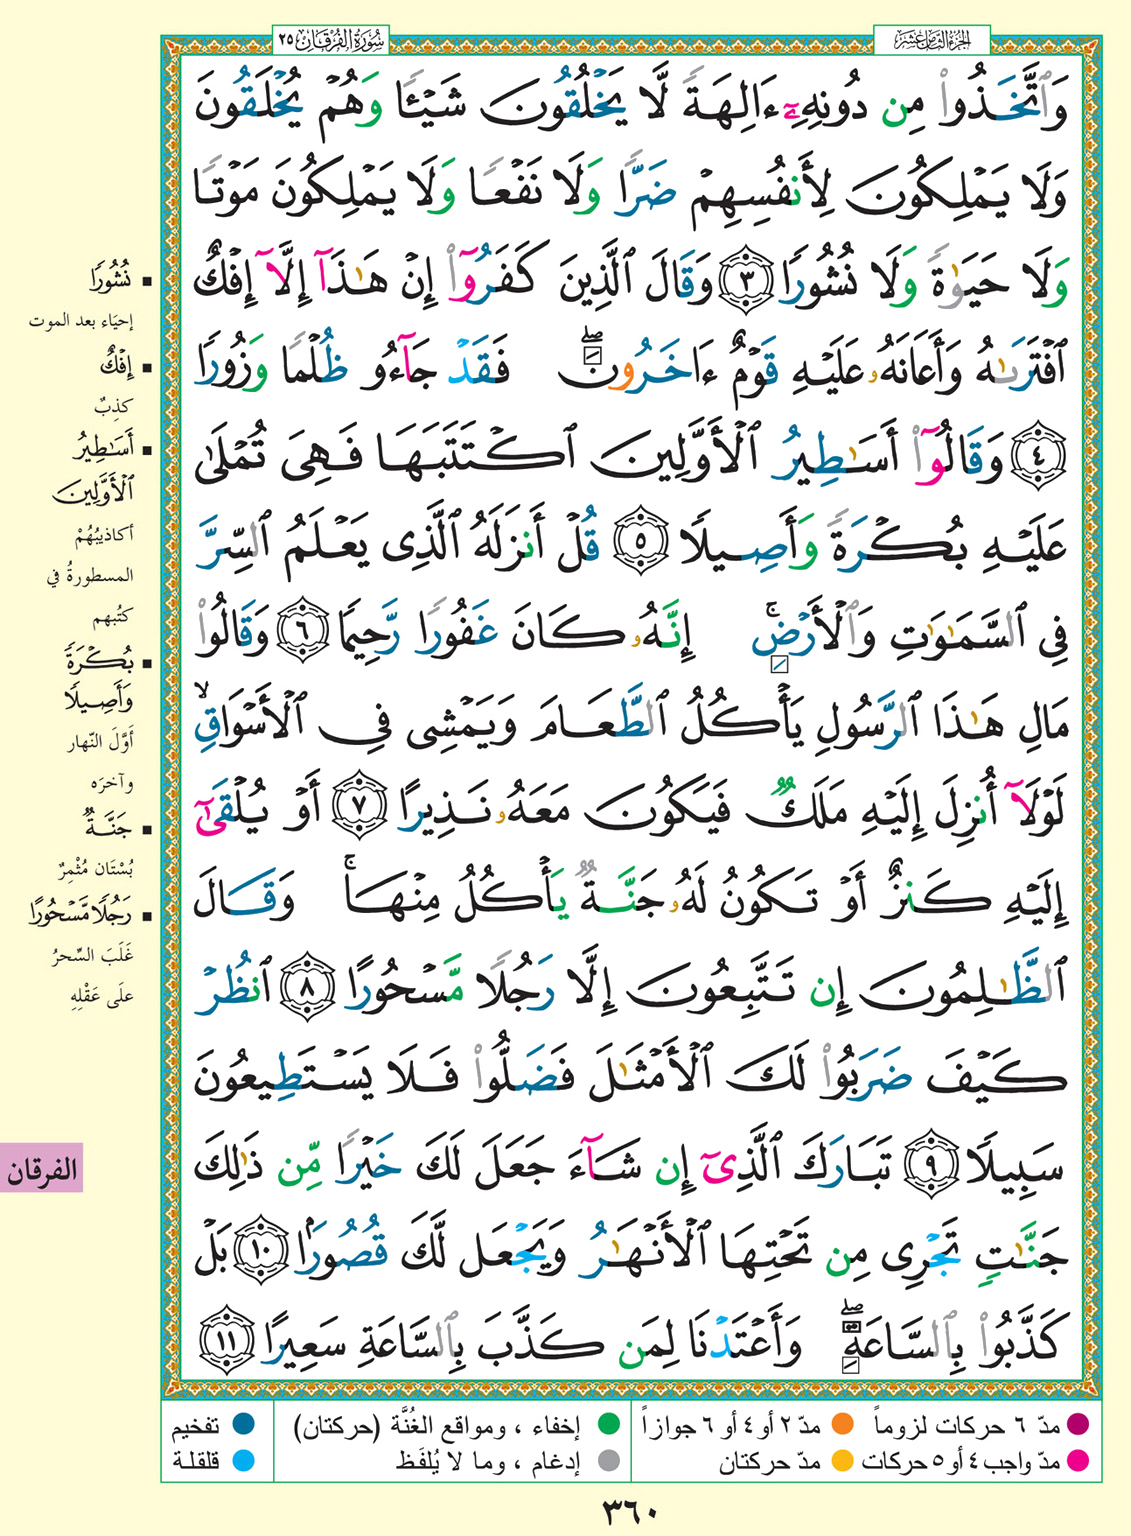 الجزء الثامن عشر
سورة الفرقان ٢٥
وَٱتَّخَذُوا۟ مِن دُونِهِۦٓ ءَالِهَةً لَّا يَخْلُقُونَ شَيْـًٔا وَهُمْ يُخْلَقُونَ
وَلَا يَمْلِكُونَ لِأَنفُسِهِمْ ضَرًّا وَلَا نَفْعًا وَلَا يَمْلِكُونَ مَوْتًا
وَلَا حَيَوٰةً وَلَا نُشُورًا ٣ وَقَالَ ٱلَّذِينَ كَفَرُوٓا۟ إِنْ هَـٰذَآ إِلَّآ إِفْكٌ
ٱفْتَرَىٰهُ وَأَعَانَهُۥ عَلَيْهِ قَوْمٌ ءَاخَرُونَ ۖ فَقَدْ جَآءُو ظُلْمًا وَزُورًا
٤ وَقَالُوٓا۟ أَسَـٰطِيرُ ٱلْأَوَّلِينَ ٱكْتَتَبَهَا فَهِىَ تُمْلَىٰ
عَلَيْهِ بُكْرَةً وَأَصِيلًا ٥ قُلْ أَنزَلَهُ ٱلَّذِى يَعْلَمُ ٱلسِّرَّ
فِى ٱلسَّمَـٰوَٰتِ وَٱلْأَرْضِ ۚ إِنَّهُۥ كَانَ غَفُورًا رَّحِيمًا ٦ وَقَالُوا۟
مَالِ هَـٰذَا ٱلرَّسُولِ يَأْكُلُ ٱلطَّعَامَ وَيَمْشِى فِى ٱلْأَسْوَاقِ ۙ
لَوْلَآ أُنزِلَ إِلَيْهِ مَلَكٌ فَيَكُونَ مَعَهُۥ نَذِيرًا ٧ أَوْ يُلْقَىٰٓ
إِلَيْهِ كَنزٌ أَوْ تَكُونُ لَهُۥ جَنَّةٌ يَأْكُلُ مِنْهَا ۚ وَقَالَ
ٱلظَّـٰلِمُونَ إِن تَتَّبِعُونَ إِلَّا رَجُلًا مَّسْحُورًا ٨ ٱنظُرْ
كَيْفَ ضَرَبُوا۟ لَكَ ٱلْأَمْثَـٰلَ فَضَلُّوا۟ فَلَا يَسْتَطِيعُونَ
سَبِيلًا ٩ تَبَارَكَ ٱلَّذِىٓ إِن شَآءَ جَعَلَ لَكَ خَيْرًا مِّن ذَٰلِكَ
جَنَّـٰتٍ تَجْرِى مِن تَحْتِهَا ٱلْأَنْهَـٰرُ وَيَجْعَل لَّكَ قُصُورًۢا ١٠ بَلْ
كَذَّبُوا۟ بِٱلسَّاعَةِ ۖ وَأَعْتَدْنَا لِمَن كَذَّبَ بِٱلسَّاعَةِ سَعِيرًا ١١
▪ نُشُورًا
إحيَاء بعد الموت
▪ إِفْكٌ
كذِبٌ
▪ أَسَـٰطِيرُ
ٱلْأَوَّلِينَ
أكاذيبُهُمْ
المسطورةُ في
كتُبهم
▪ بُكْرَةً
وَأَصِيلًا
أَوَّلَ النّهار
وآخرَه
▪ جَنَّةٌ
بُسْتَان مُثْمِرٌ
▪ رَجُلًا مَّسْحُورًا
غَلَبَ السِّحرُ
علَى عَقْلِهِ
الفرقان
مدّ ٦ حركات لزوماً
مدّ ٢ أو ٤ أو ٦ جوازاً
إخفاء ، ومواقع الغُنَّة (حركتان)
تفخيم
مدّ واجب ٤ أو ٥ حركات
مدّ حركتان
إدغام ، وما لا يُلفَظ
قلقلة
٣٦٠